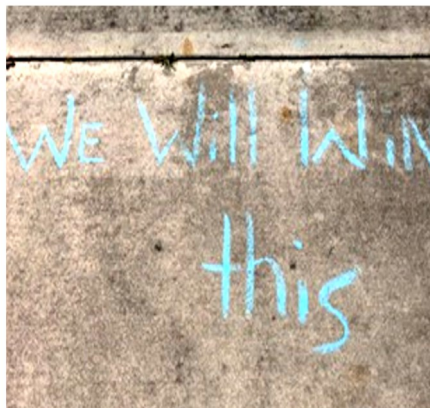 We Will Win
this